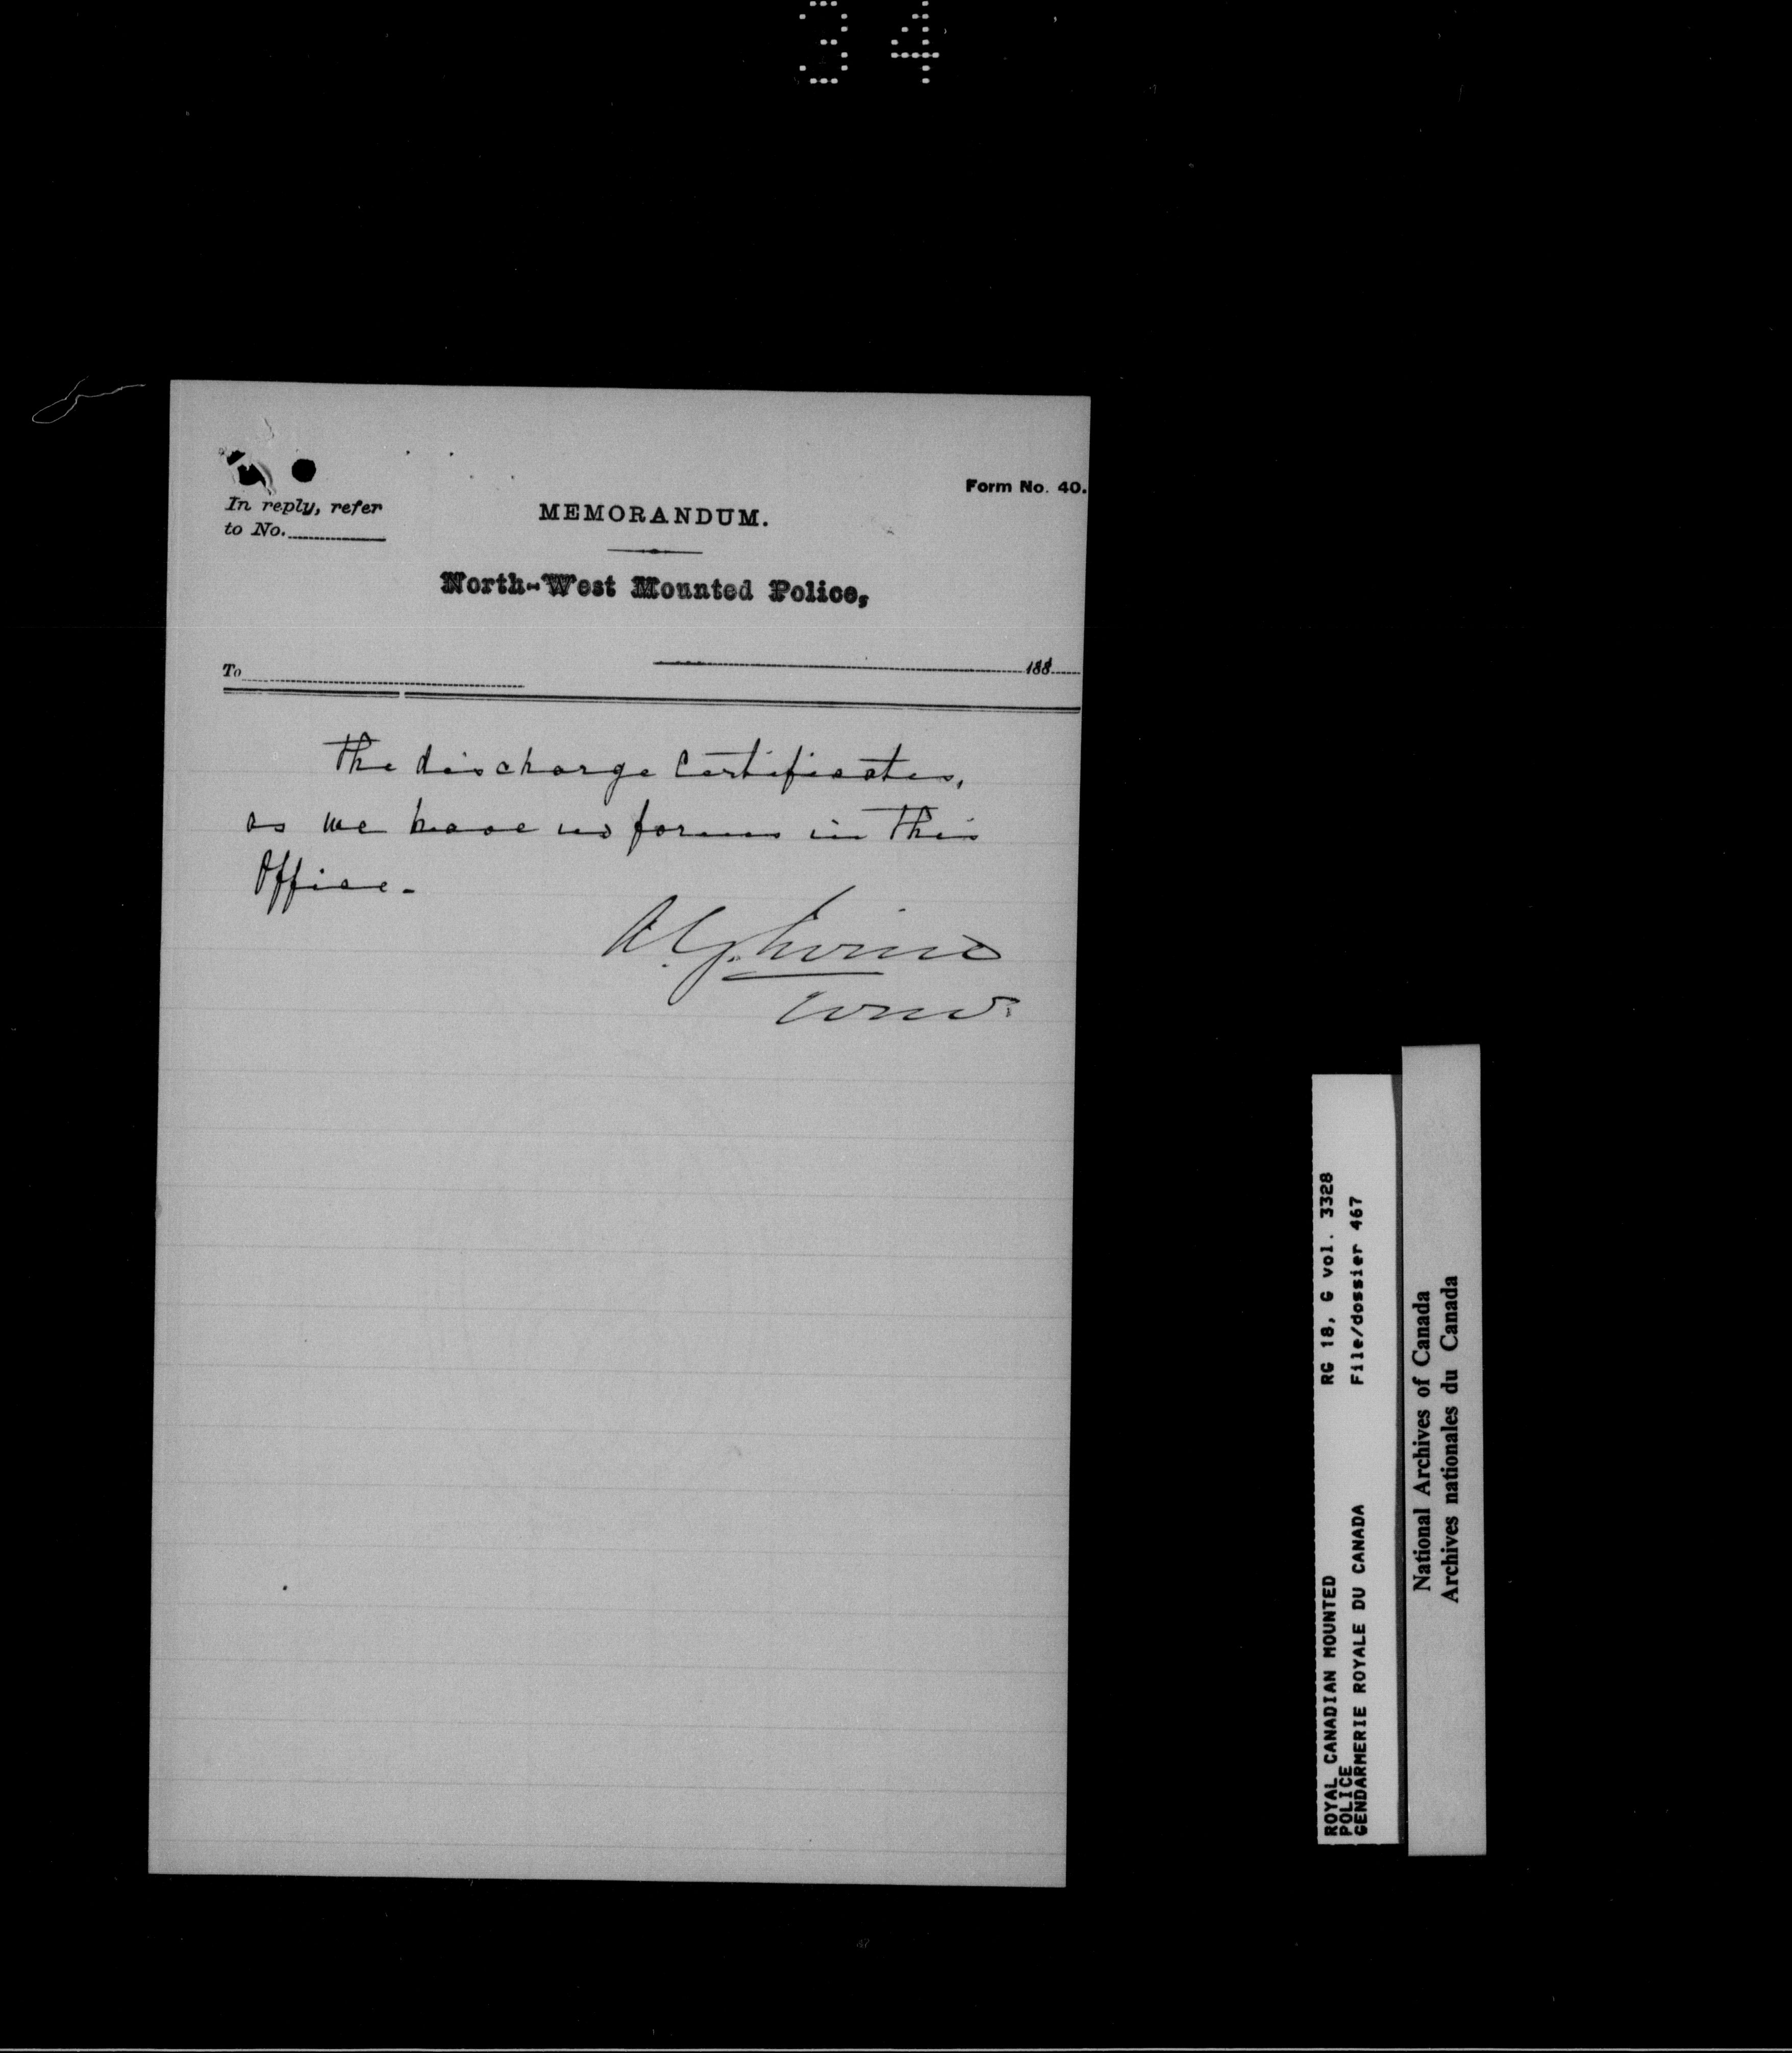 34
Form No. 40.
In reply, refer
to No.
MEMORANDUM.
North-West Mounted Police,
188
To
The discharge Certificates,
as we have no forms in this
Office.
A.G. Irvine
Comr.
RG 18, G vol. 3328
File/dossier 467
ROYAL CANADIAN MOUNTED
POLICE
GENDARMERIE ROYALE DU CANADA
National Archives of Canada
Archives nationales du Canada